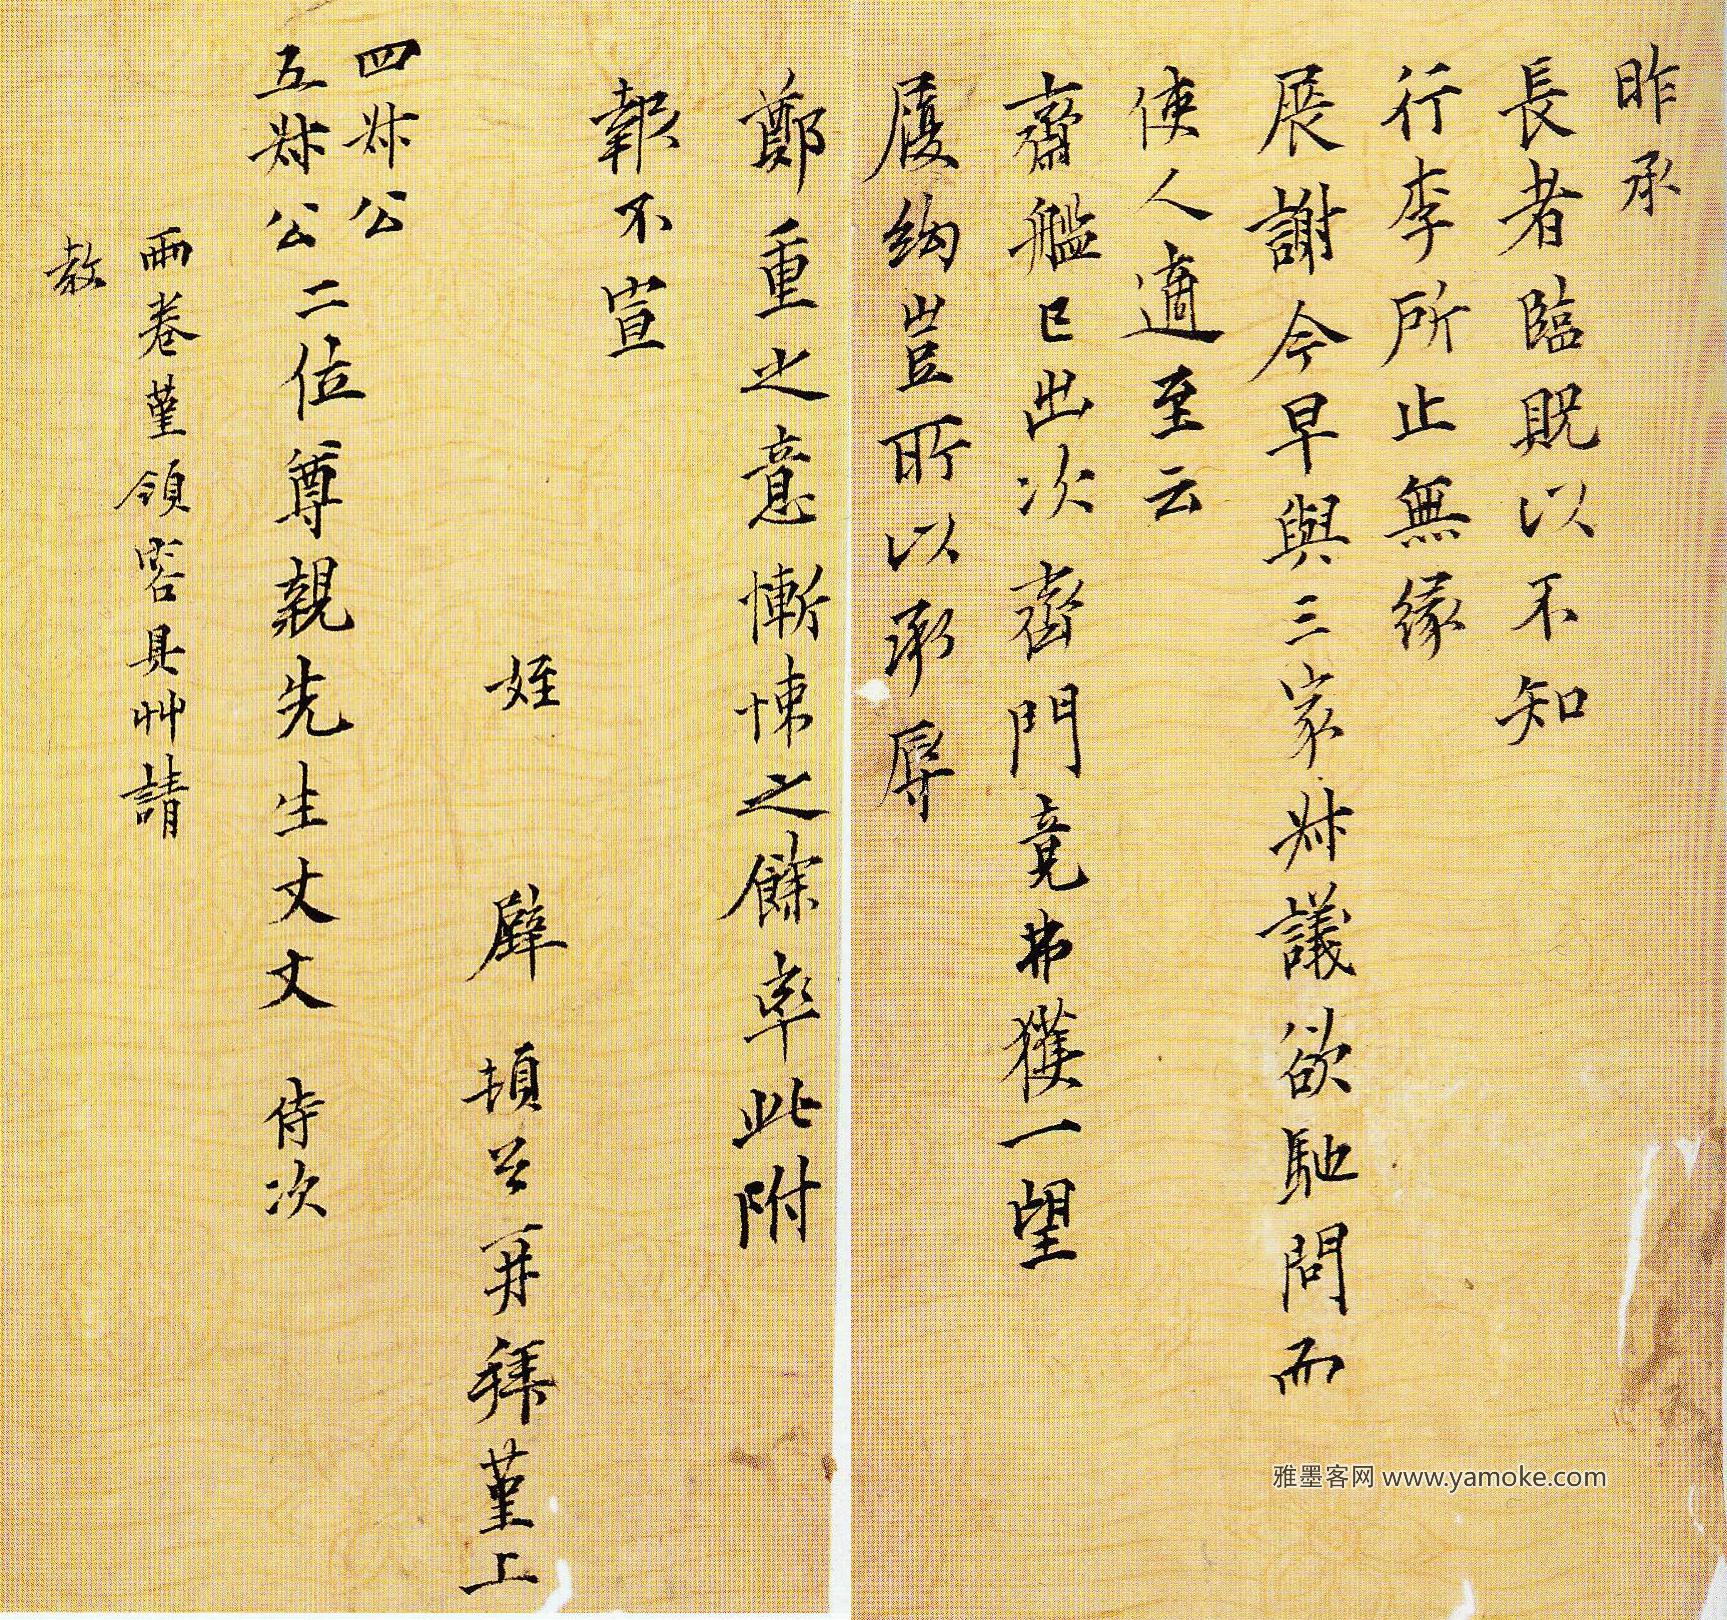 昨承
長者臨貺以不知
行李所止無緣
展謝今早與三家叔議欲馳問而
使人適至云
齋艦已出次齊門竟弗獲一望
履絇豈所以承辱
鄭重之意慚悚之餘率此附
報不宣
姪 璧 頓首再拜謹上
四叔公
五叔公二位尊親先生丈丈 侍次
兩卷謹領容具艸請
教
雅墨客网 www.yamoke.com